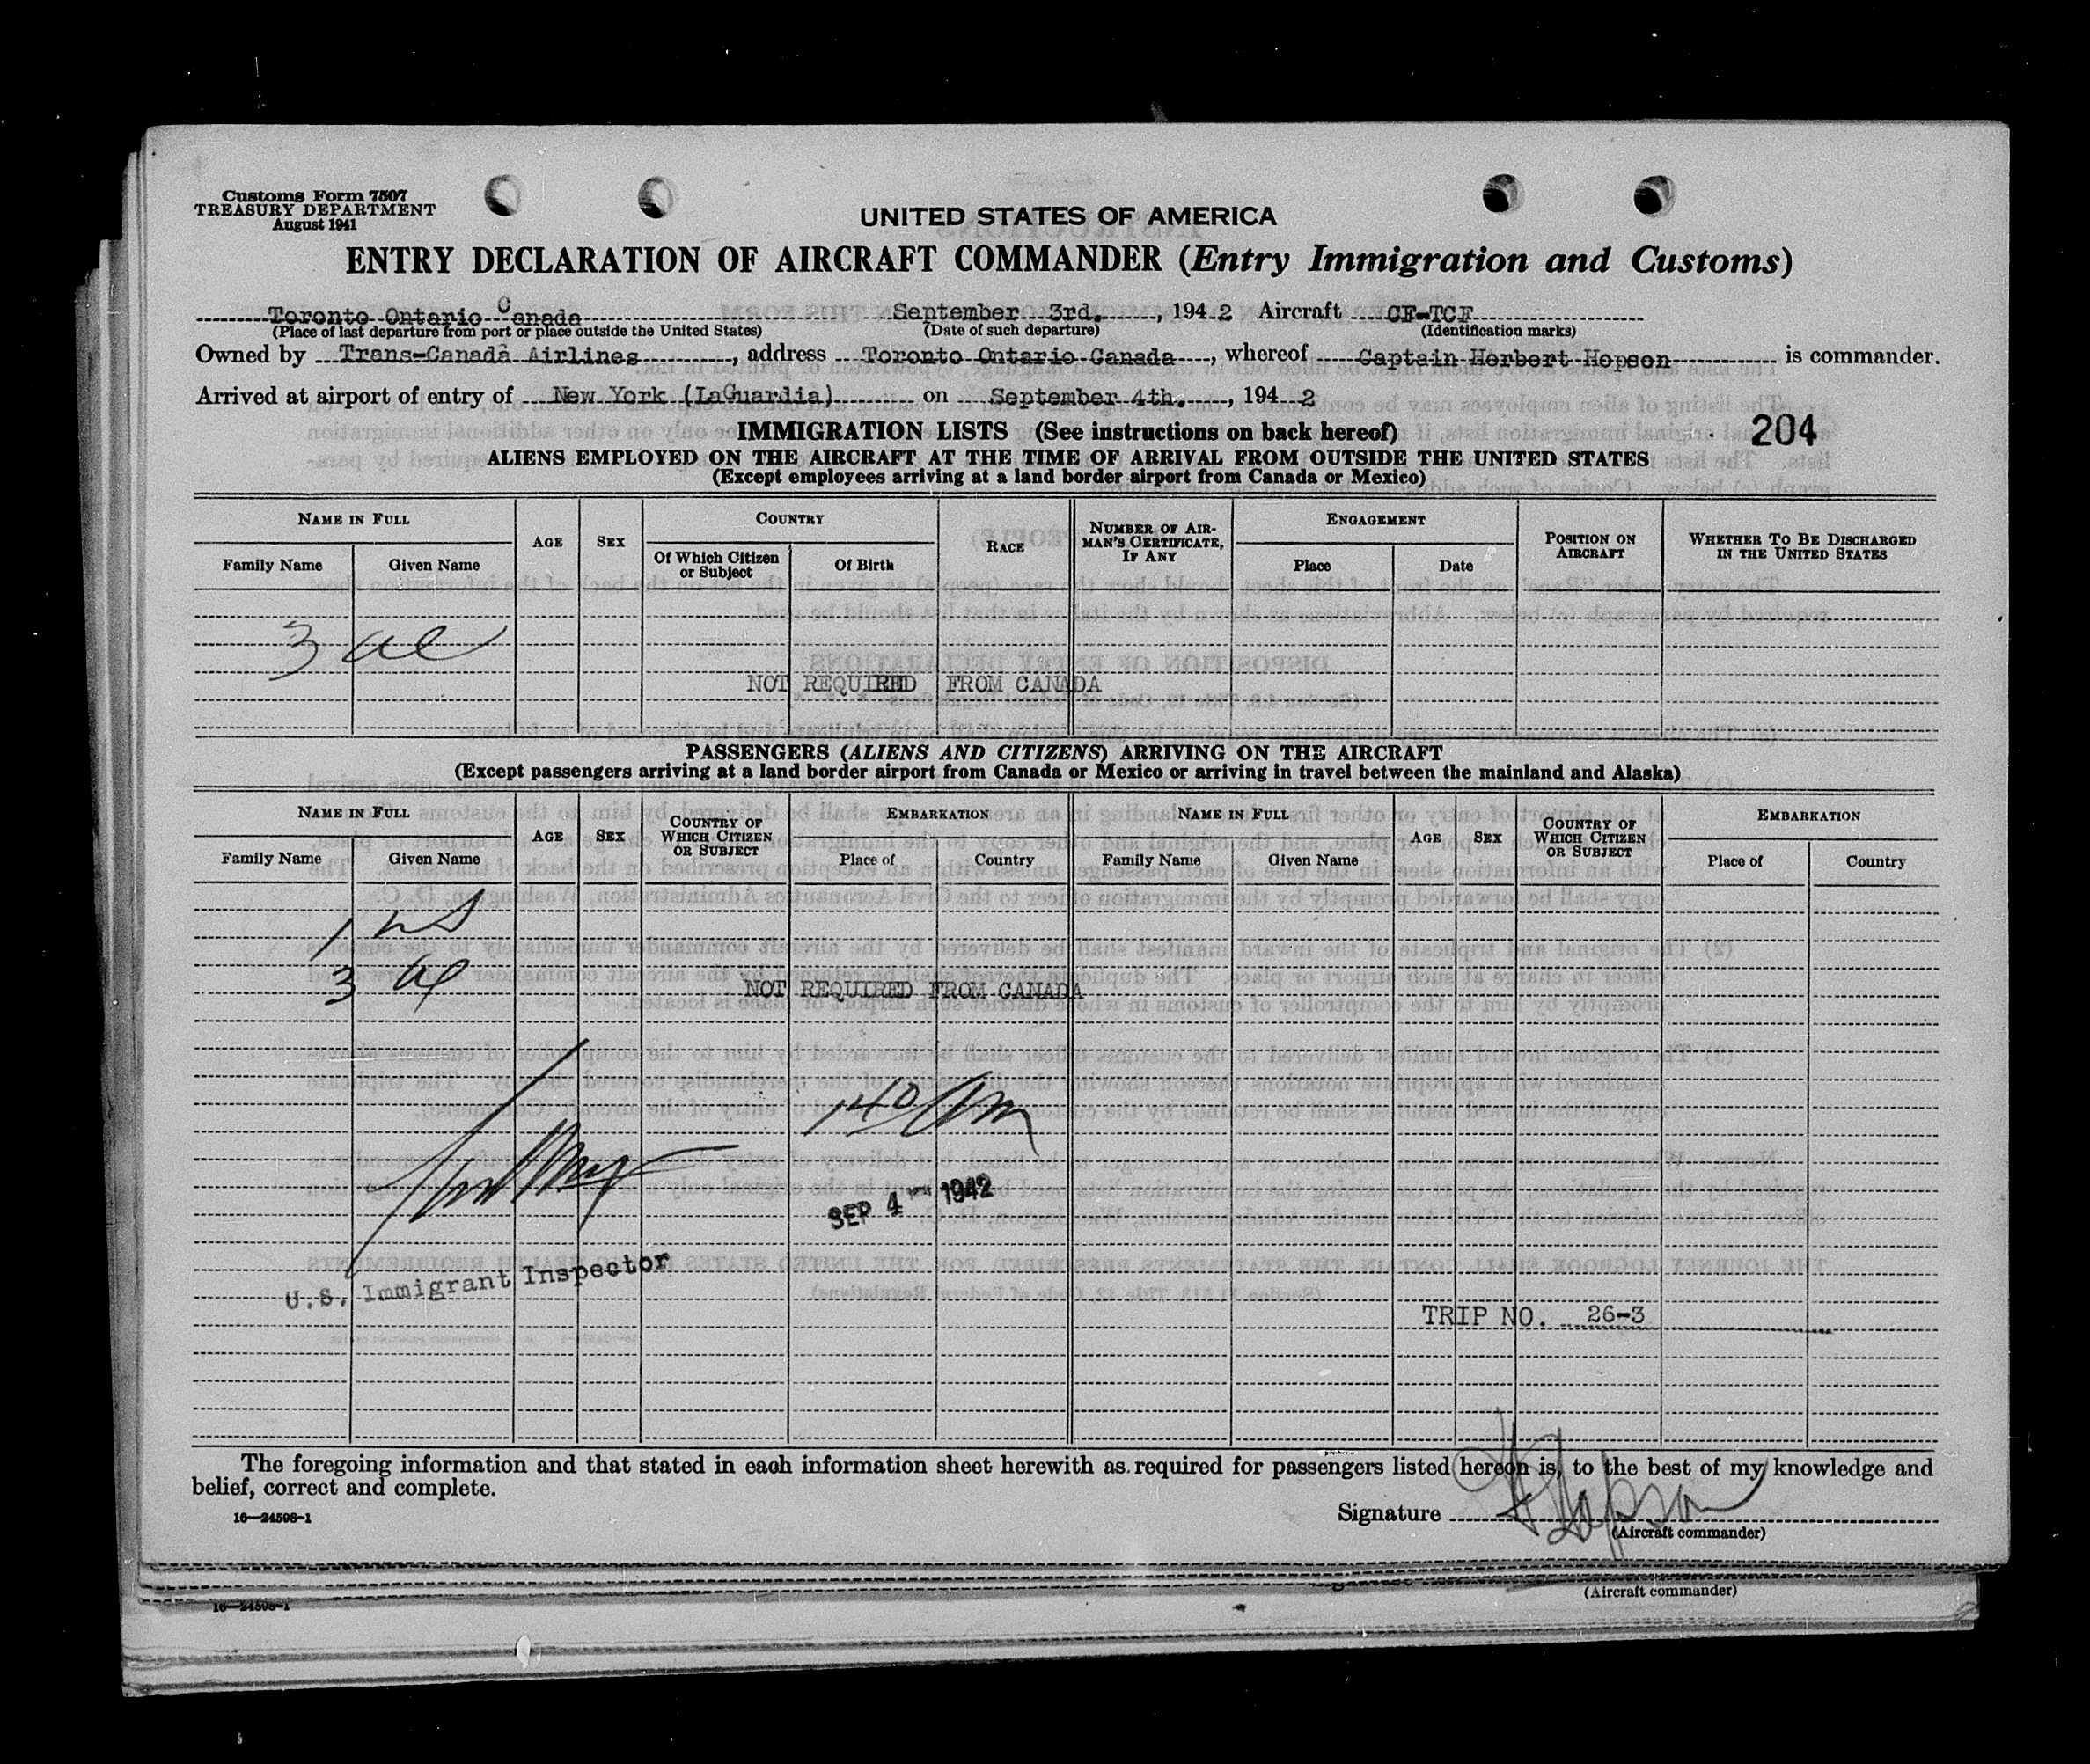 Customs Form 7507
TREASURY DEPARTMENT
August 1941
UNITED STATES OF AMERICA
ENTRY DECLARATION OF AIRCRAFT COMMANDER (Entry Immigration and Customs)
Toronto Ontario Canada September 3rd., 1942 Aircraft CF-TCF
(Place of last departure from port or place outside the United States) (Date of such departure) (Identification marks)
Owned by Trans-Canada Airlines, address Toronto Ontario Canada, whereof Captain Herbert Hopson is commander.
Arrived at airport of entry of New York (LaGuardia) on September 4th., 1942
IMMIGRATION LISTS (See instructions on back hereof)
204
ALIENS EMPLOYED ON THE AIRCRAFT AT THE TIME OF ARRIVAL FROM OUTSIDE THE UNITED STATES
(Except employees arriving at a land border airport from Canada or Mexico)
NAME IN FULL AGE SEX COUNTRY RACE NUMBER OF AIRMAN'S CERTIFICATE, IF ANY ENGAGEMENT POSITION ON AIRCRAFT WHETHER TO BE DISCHARGED IN THE UNITED STATES
Family Name Given Name Of Which Citizen or Subject Of Birth Place Date
3
NOT REQUIRED FROM CANADA
PASSENGERS (ALIENS AND CITIZENS) ARRIVING ON THE AIRCRAFT
(Except passengers arriving at a land border airport from Canada or Mexico or arriving in travel between the mainland and Alaska)
NAME IN FULL AGE SEX COUNTRY OF WHICH CITIZEN OR SUBJECT EMBARKATION NAME IN FULL AGE SEX COUNTRY OF WHICH CITIZEN OR SUBJECT EMBARKATION
Family Name Given Name Place of Country Family Name Given Name Place of Country
1
3
NOT REQUIRED FROM CANADA
140 Am
SEP 4 1942
U.S. Immigrant Inspector
TRIP NO. 26-3
The foregoing information and that stated in each information sheet herewith as required for passengers listed hereon is, to the best of my knowledge and
belief, correct and complete.
16—24598-1
Signature H Hopson
(Aircraft commander)
(Aircraft commander)
16—24598-1